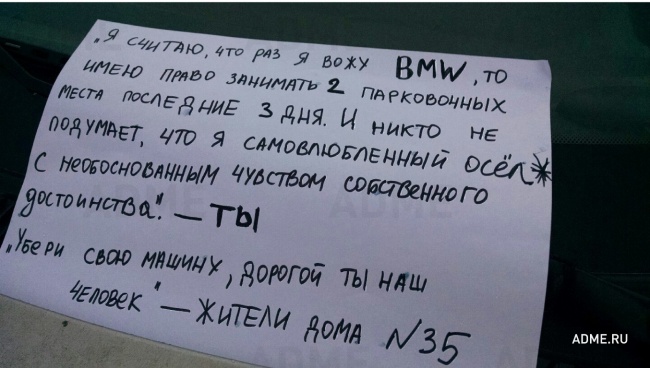 „Я СЧИТАЮ, ЧТО РАЗ Я ВОЖУ BMW, ТО
ИМЕЮ ПРАВО ЗАНИМАТЬ 2 ПАРКОВОЧНЫХ
МЕСТА ПОСЛЕДНИЕ 3 ДНЯ. И НИКТО НЕ
ПОДУМАЕТ, ЧТО Я САМОВЛЮБЛЕННЫЙ ОСЁЛ*
С НЕОБОСНОВАННЫМ ЧУВСТВОМ СОБСТВЕННОГО
ДОСТОИНСТВА". — ТЫ
„УБЕРИ СВОЮ МАШИНУ, ДОРОГОЙ ТЫ НАШ
ЧЕЛОВЕК" — ЖИТЕЛИ ДОМА N35
ADME.RU